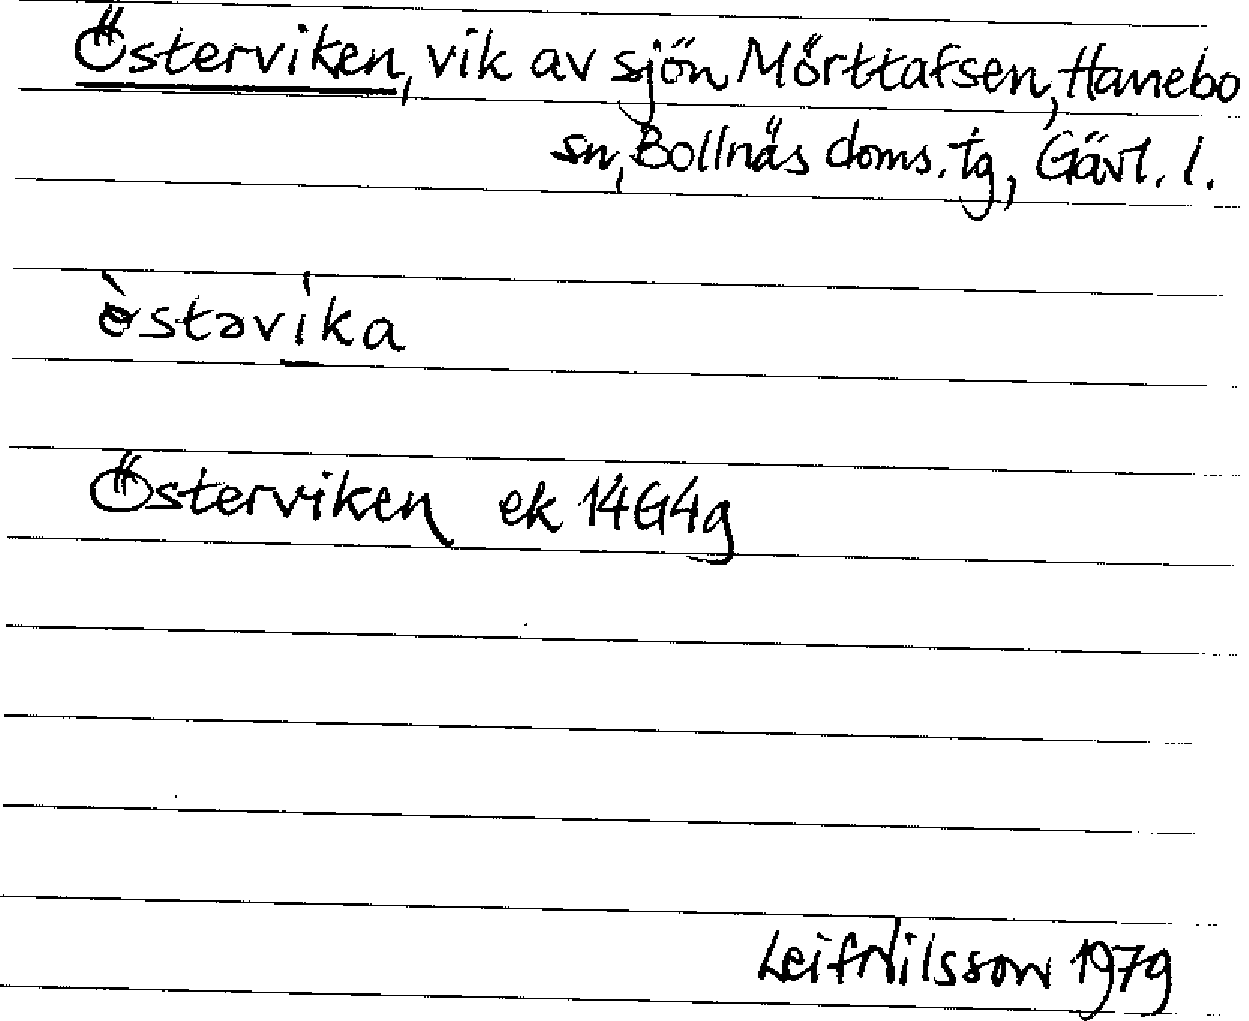 Österviken, vik av sjön Mörttafsen, Hanebo
sn, Bollnäs doms. tg, Gävl. l.
èstəvíka
Österviken ek 14G4g
Leif Nilsson 1979